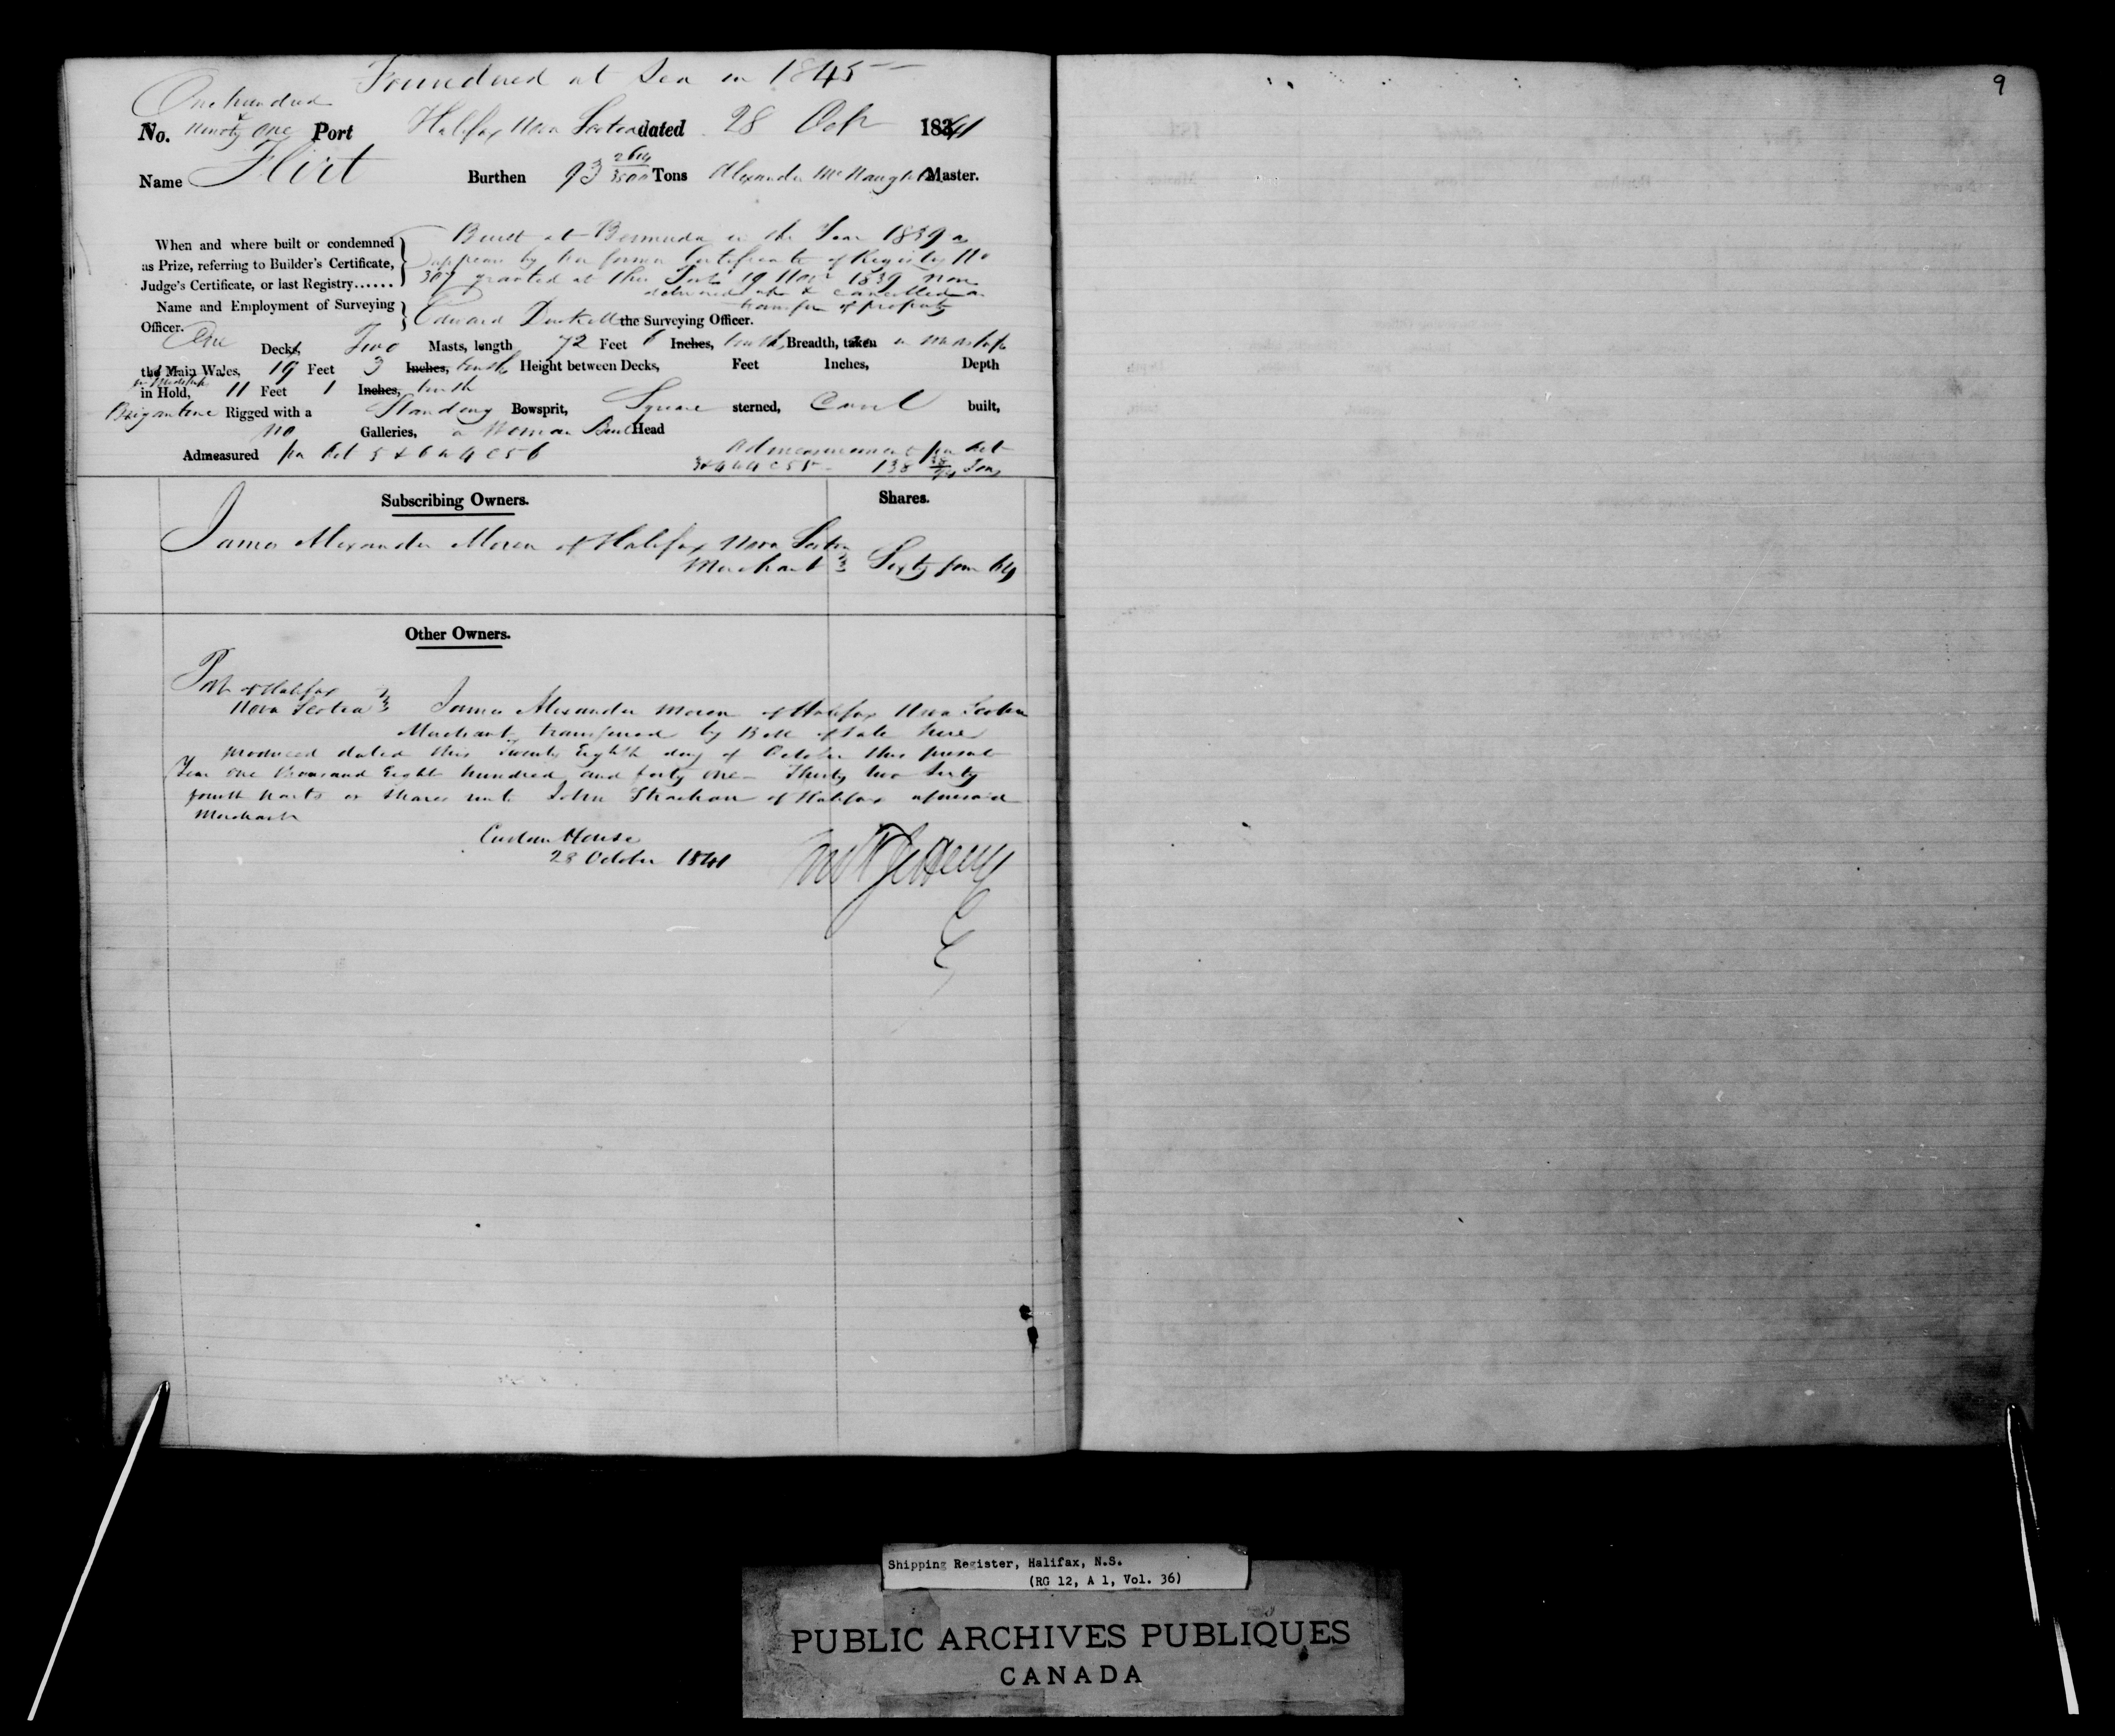 Foundered at Sea in 1845
9
One hundred
No. & Ninety One Port Halifax Nova Scotia dated 28 Octr 1841
Name Flirt Burthen 93 2614/3500 Tons Alexander McNaughton Master.
When and where built or condemned
as Prize, referring to Builder's Certificate,
Judge's Certificate, or last Registry......
Built at Bermuda in the Year 1839 as
appears by her former Certificate of Registry No
307 granted at this Port 19 Novr 1839 now
delivered up & cancelled on
transfer of property
Name and Employment of Surveying
Officer.
Edward the Surveying Officer.
One Deck, Two Masts, length 72 Feet 6 Inches, tenths, Breadth, taken in midships
the Main Wales, 19 Feet 3 Inches, tenths Height between Decks, Feet Inches, Depth
in Midships
in Hold, 11 Feet 1 Inches, tenth
Brigantine Rigged with a Standing Bowsprit, Square sterned, Carvel built,
no Galleries, a Woman Bust Head
Admeasured per Act 5 & 6 W 4 C 56
Admeasurement per Act
3 & 4 W 4 C 55 - 138 Tons
Subscribing Owners. Shares.
James Alexander Moren of Halifax Nova Scotia
Merchant Sixty four 64
Other Owners.
Port of Halifax
Nova Scotia James Alexander Moren of Halifax Nova Scotia
Merchant, transferred by Bill of Sale here
produced dated this Twenty Eighth day of October this present
Year One thousand Eight hundred and forty One Thirty two Sixty
fourth parts or Shares unto John Strachan of Halifax aforesaid
Merchant
Custom House
28 October 1841
Shipping Register, Halifax, N.S.
(RG 12, A 1, Vol. 36)
PUBLIC ARCHIVES PUBLIQUES
CANADA